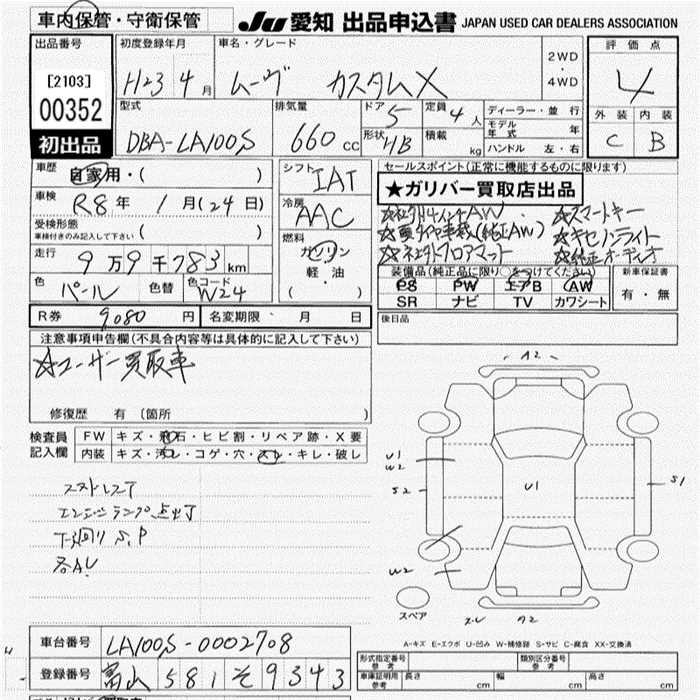 車内保管・守衛保管 JU 愛知 出品申込書 JAPAN USED CAR DEALERS ASSOCIATION
出品番号 初度登録年月 車名・グレード 評価点
[2103] H23 4月 ムーヴ カスタムX 2WD・4WD 4
00352 型式 排気量 ドア 5 定員 4人 ディーラー・並行 外装 内装
初出品 DBA-LA100S 660cc 形状 HB 積載 kg モデル年式 年 C B
ハンドル 左・右
車歴 自家用・( ) シフト IAT セールスポイント(正常に機能するものに限ります)
★ガリバー買取店出品
車検 R8年 1月(24日) 冷房 AAC ☆社外14インチAW ☆スマートキー
受検形態 ☆夏タイヤ車載(純正AW) ☆キセノンライト
車検付きのみ記入して下さい ( ) 燃料 ☆社外フロアマット ☆純正オーディオ
走行 9万9千783km ガソリン 装備品(純正品に限り○をつけてください) 新車保証書
色 パール 色替 色コード W24 軽油 PS PW エアB AW 有・無
( ) SR ナビ TV カワシート
R券 9080円 名変期限 月 日 後日品
注意事項申告欄(不具合内容等は具体的に記入して下さい)
☆ユーザー買取車
修復歴 有 (箇所 )
検査員 FW キズ・飛石・ヒビ割・リペア跡・X要
記入欄 内装 キズ・汚レ・コゲ・穴・スレ・キレ・破レ
スストレスT
エンジンランプ点灯
下廻りS,P
各AU
A2
U1
W2
S2
U1
S1
W2
A2
スペア
A-キズ E-エクボ U-凹み W-補修跡 S-サビ C-腐食 XX-交換済
車台番号 LA100S-0002708
登録番号 富山 581 そ 9343
形式指定番号 参考 類別区分番号 参考
車庫証明用 参考 長さ cm 幅 cm 高さ cm